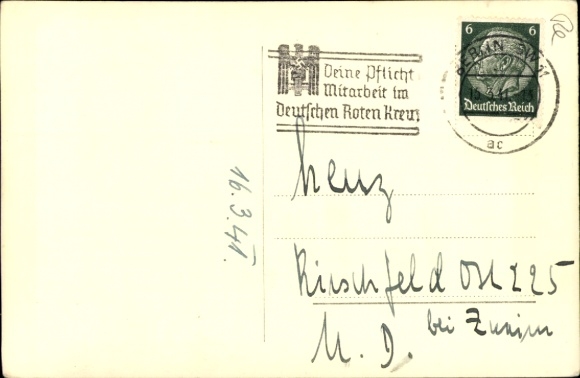 6 6
Deutsches Reich
BERLIN SW 11
ac
Deine Pflicht
Mitarbeit im
Deutschen Roten Kreuz
16.3.41.
Kirschfeld Ost 225
bei
N. D.